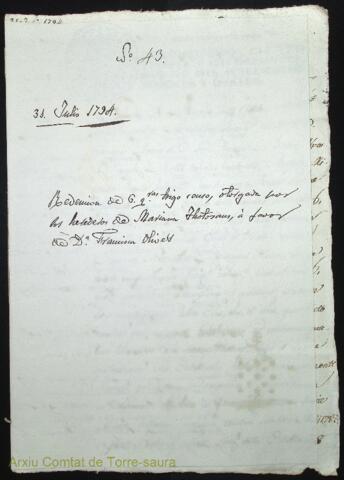 Nº 43.
31 Julio 1794.
Redencion de 6 qras trigo censo, otorgada por
los herederos de Mariana
à favor
de Dª Francisca Olives
Arxiu Comtat de Torre-saura